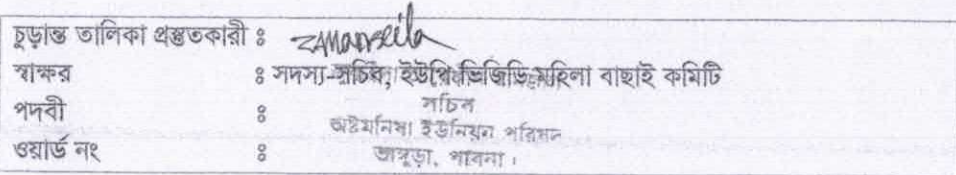 চুড়ান্ত তালিকা প্রস্তুতকারী ঃ
স্বাক্ষর ঃ সদস্য-সচিব, ইউপি ভিজিডি মহিলা বাছাই কমিটি
পদবী ঃ সচিব
অষ্টমনিষা ইউনিয়ন পরিষদ
ওয়ার্ড নং ঃ ভাঙ্গুড়া, পাবনা।